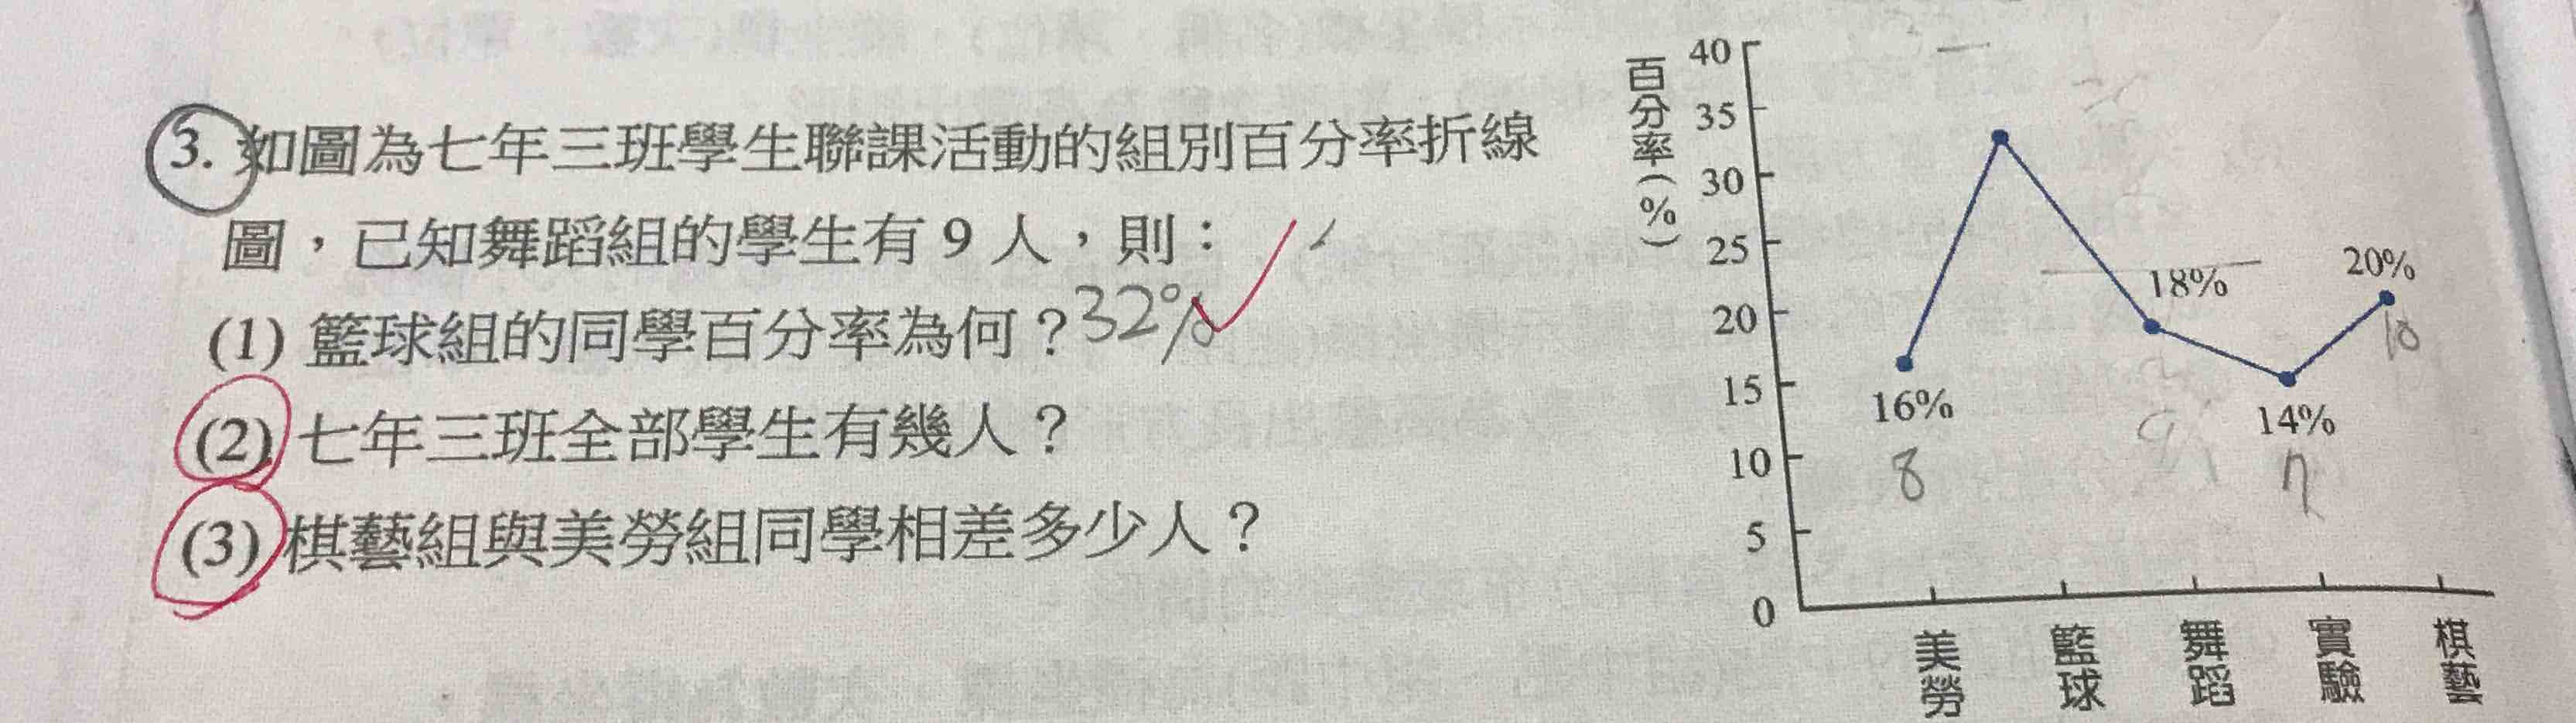 3. 如圖為七年三班學生聯課活動的組別百分率折線
圖，已知舞蹈組的學生有 9 人，則：
(1) 籃球組的同學百分率為何？32%
(2) 七年三班全部學生有幾人？
(3) 棋藝組與美勞組同學相差多少人？
百分率(%)
40
35
30
25
20
15
10
5
0
16%
18%
14%
20%
8
9
7
10
美勞
籃球
舞蹈
實驗
棋藝